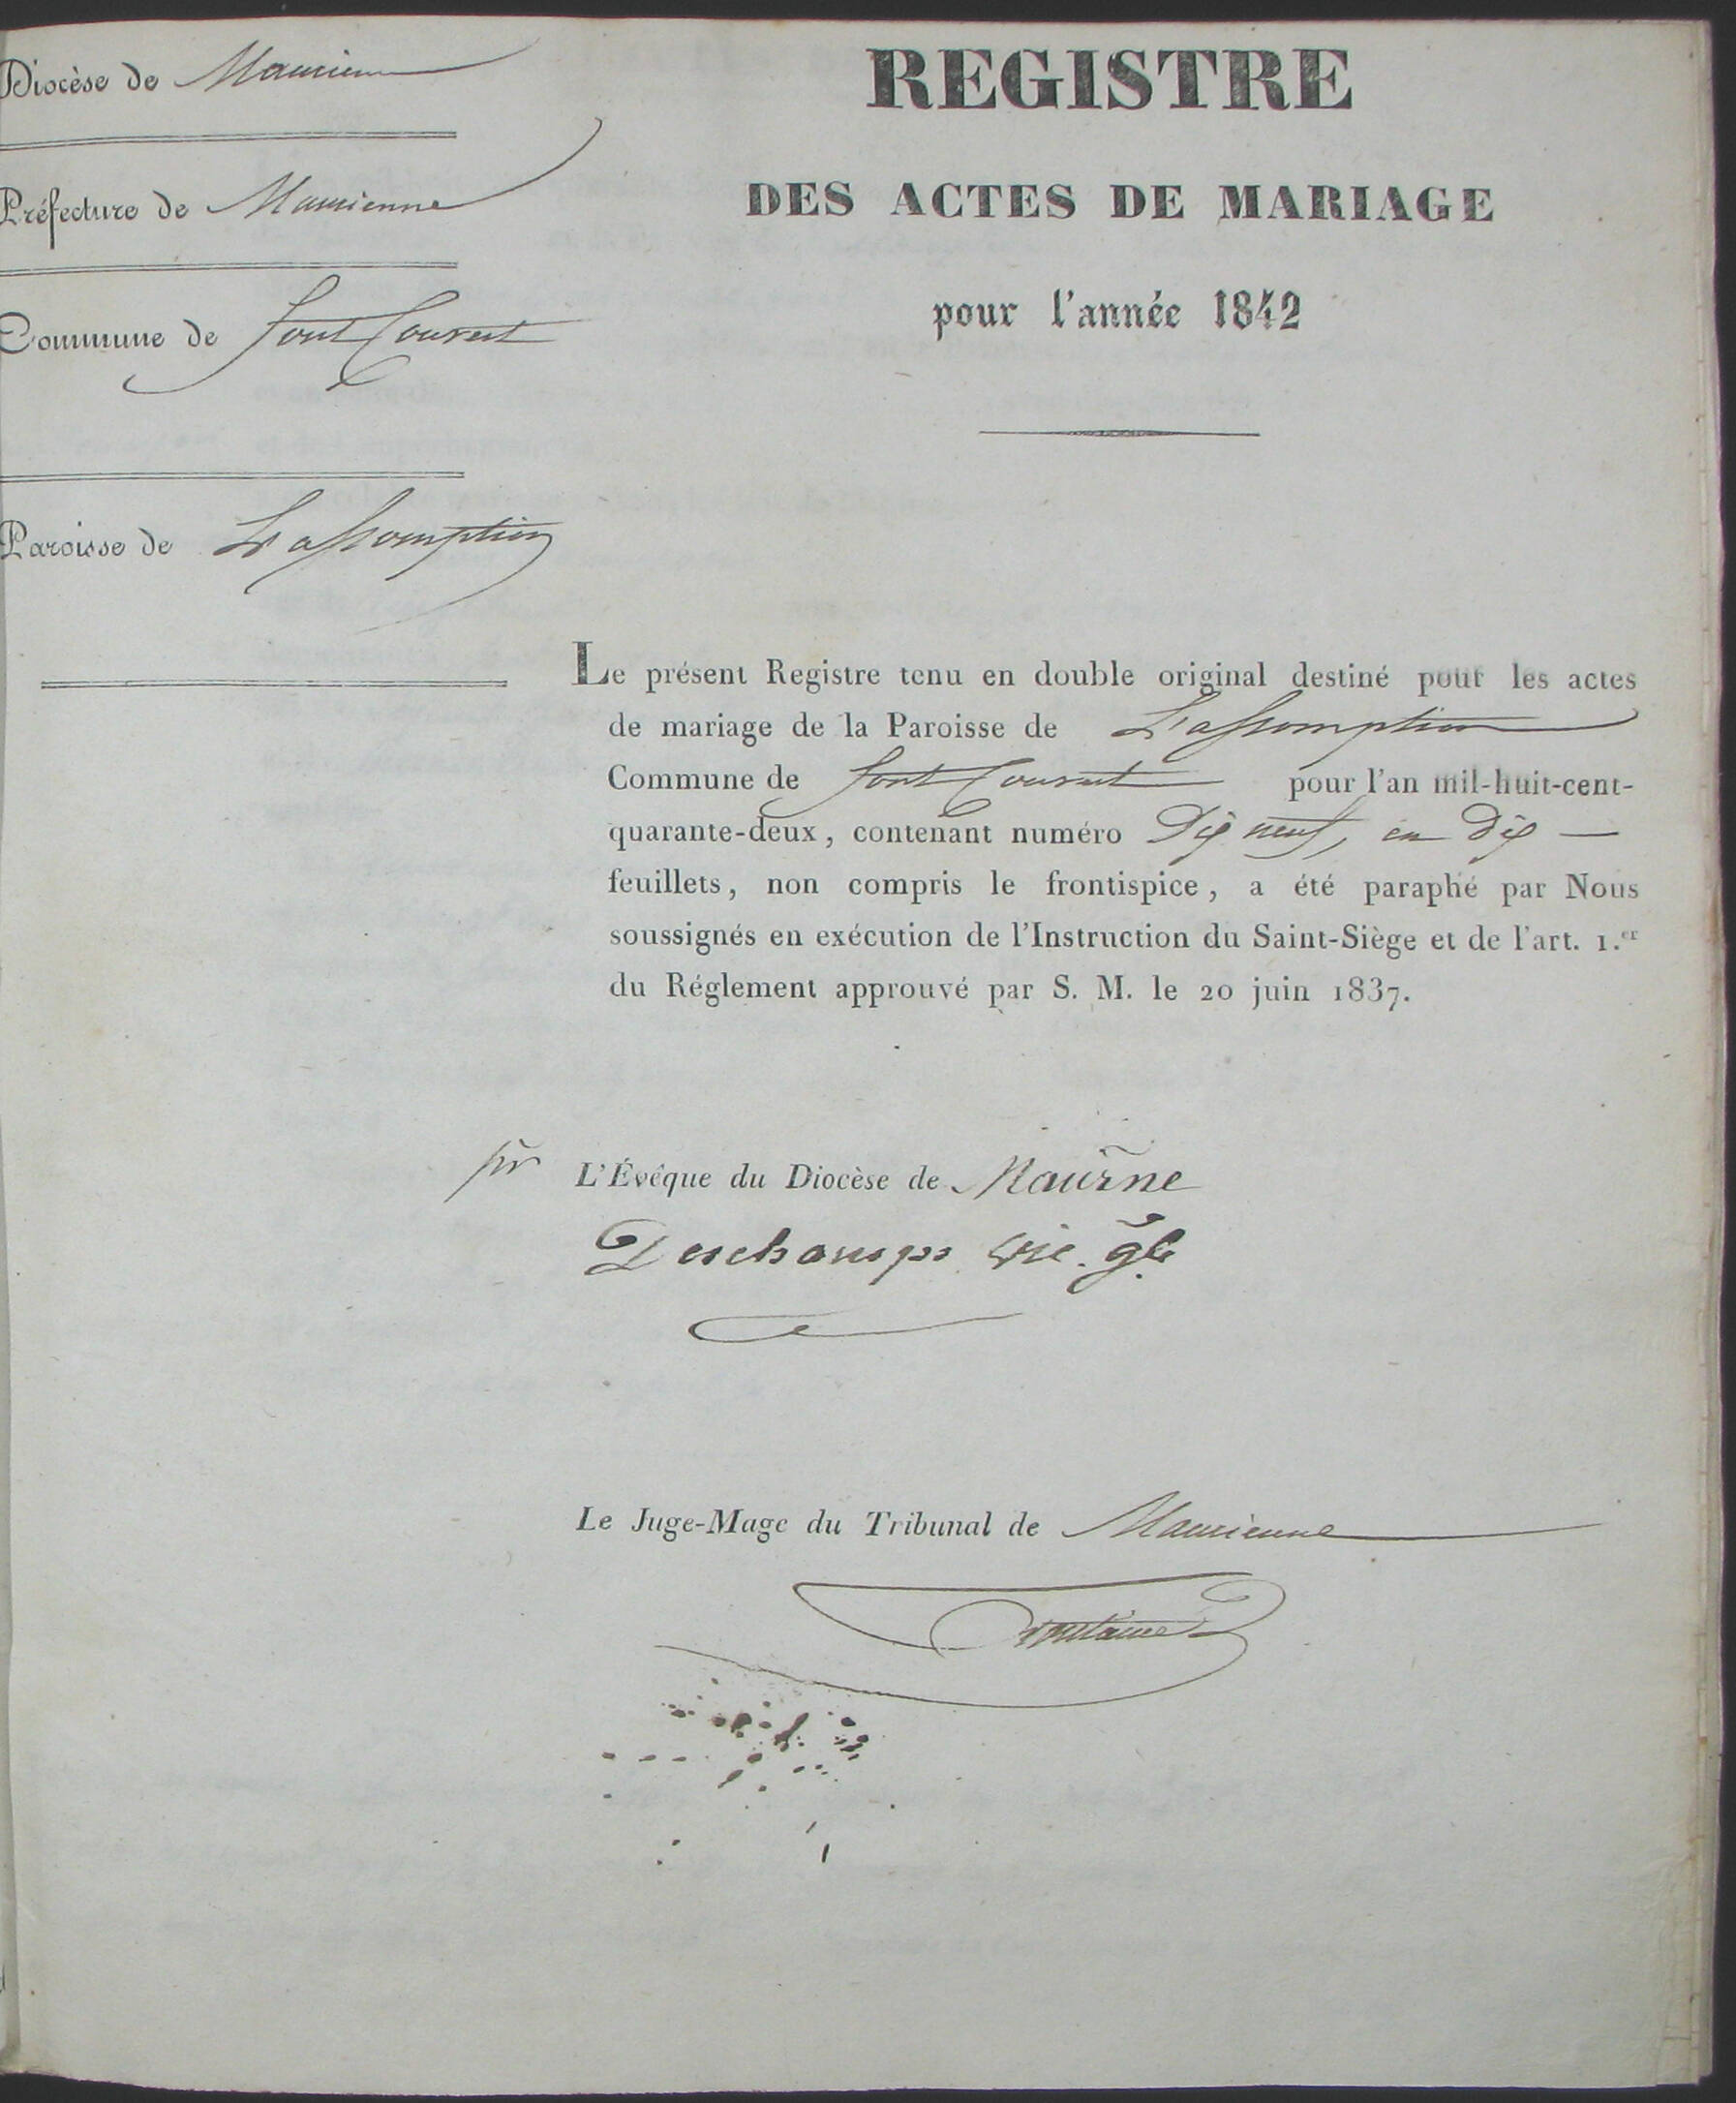 Diocèse de Maurienne
Préfecture de Maurienne
Commune de Font Couvert
Paroisse de L'assomption
REGISTRE
DES ACTES DE MARIAGE
pour l'année 1842
Le présent Registre tenu en double original destiné pour les actes
de mariage de la Paroisse de L'assomption
Commune de Font Couvert pour l'an mil-huit-cent-
quarante-deux, contenant numéro Dix neuf, en dix —
feuillets, non compris le frontispice, a été paraphé par Nous
soussignés en exécution de l'Instruction du Saint-Siège et de l'art. 1.er
du Réglement approuvé par S. M. le 20 juin 1837.
pr L'Évêque du Diocèse de Maurne
Deschamps vic. gl
Le Juge-Mage du Tribunal de Maurienne